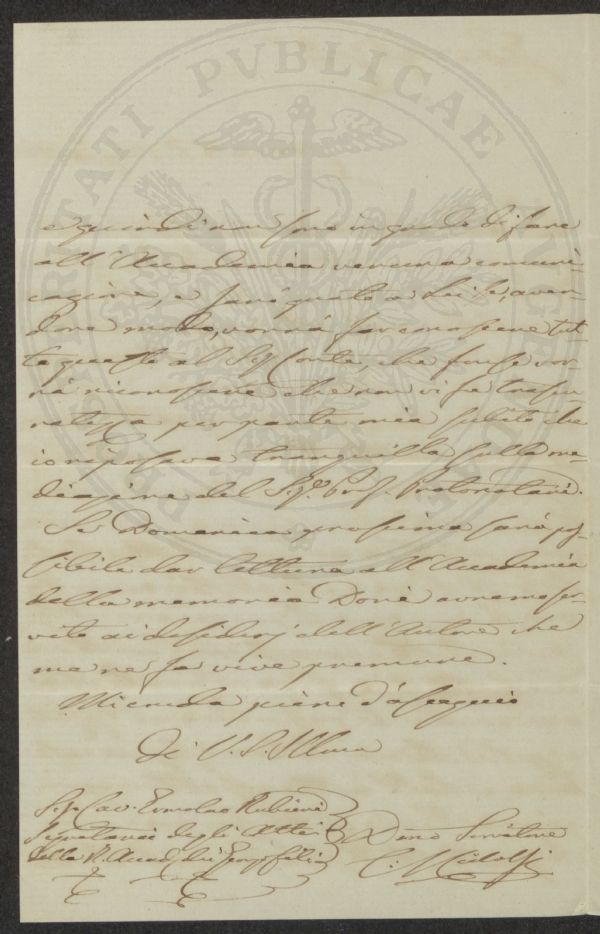 PROSPERITATI PVBLICAE AVGENDAE
e quindi non sono in grado di fare
all'Accademia veruna comuni-
cazione, e sarò grato a Lei se, aven-
done modo, vorrà far conoscere tut-
to questo al Sig Conte, che forse vor-
rà riconoscere che non vi fu trascu-
ratezza per parte mia subito che
io riposava tranquillo sulla me-
diazione del Sig.r Prof. Protonotari.
Se Domenica prossima sarà pos-
sibile dar lettura all'Accademia
della memoria Doria avremo ser-
vito ai desiderj dell'Autore che
me ne fa vive premure.
Mi creda pieno d'ossequio
di V. S. Illma
Sig. Cav. Ermolao Rubieri
Segretario degli Atti
della R. Accad. dei Georgofili
Dmo Servitore
C. Ridolfi